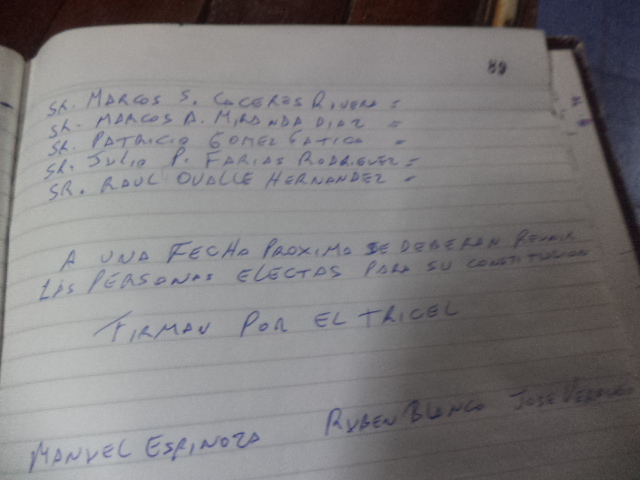 89
SR. MARCOS S. CACERES RIVERA =
SR. MARCOS A. MIRANDA DIAZ =
SR. PATRICIO GOMEZ GATICA =
SR. JULIO P. FARIAS RODRIGUEZ =
SR. RAUL OVALLE HERNANDEZ =
A UNA FECHA PROXIMA SE DEBERAN REUNIR
LAS PERSONAS ELECTAS PARA SU CONSTITUCION
FIRMAN POR EL TRICEL
MANUEL ESPINOZA RUBEN BLANCO JOSE